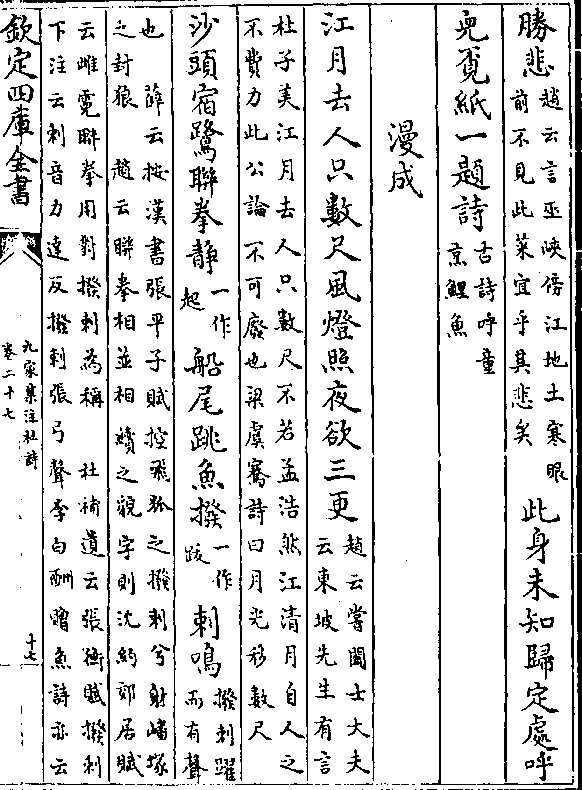 勝悲趙云言巫峽傍江地土寒眼前不見此菜宜乎其悲矣此身未知歸定處呼
兒覓紙一題詩古詩呼童烹鯉魚
漫成
江月去人只數尺風燈照夜欲三更趙云嘗聞士大夫云東坡先生有言
杜子美江月去人只數尺不若孟浩然江清月自人之
不費力此公論不可廢也梁虞騫詩曰月光移數尺
沙頭宿鷺聯拳静一作起船尾跳魚撥一作跋剌鳴撥刺躍而有聲
也　薛云按漢書張平子賦控飛弧之撥刺兮射嶓冢
之封狼　趙云聯拳相並相續之貌字則沈約郊居賦
云雌霓聯拳用對撥刺為稱　杜補遺云張衡賦撥刺
下注云刺音力達反撥刺張弓聲李白酬贈魚詩亦云
欽定四庫全書
九家集注杜詩
卷二十七
十七